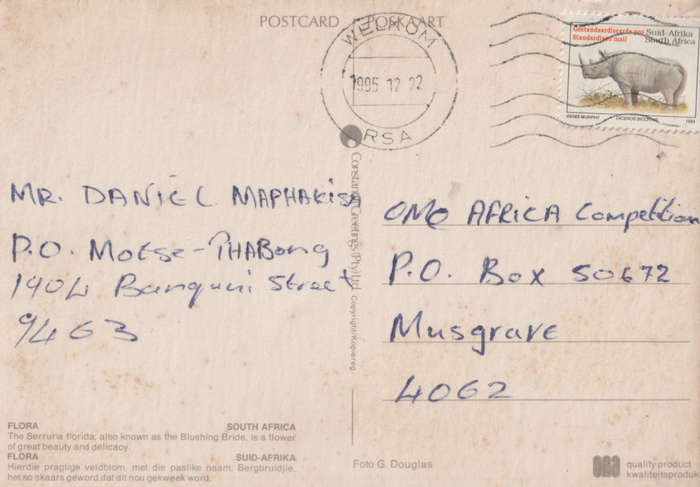 POSTCARD POSKAART
WELKOM
1995 12 22
RSA
Gestandaardiseerde pos Suid-Afrika
Standardised mail South Africa
MR. DANIEL MAPHAKISA
P.O. Motse-THABong
1904 Street
9463
OMO AFRICA Competition
P.O. Box 50672
Musgrave
4062
Constantia Greetings (Pty) Ltd. Copyright/Kopiereg
FLORA SOUTH AFRICA
The Serruria florida, also known as the Blushing Bride, is a flower
of great beauty and delicacy.
FLORA SUID-AFRIKA
Hierdie pragtige veldblom, met die paslike naam, Bergbruidjie,
het so skaars geword dat dit nou gekweek word.
Foto G. Douglas
quality product
kwaliteitsproduk